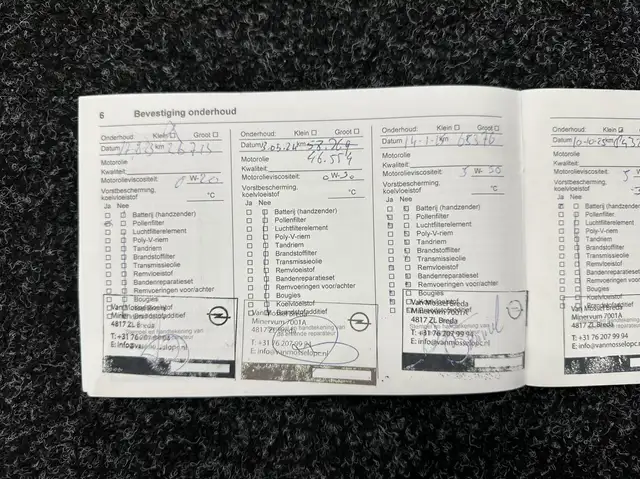 6 Bevestiging onderhoud
Onderhoud: Klein Groot
Datum km 26715
Motorolie
Kwaliteit:
Motorolieviscositeit: 0 W-20
Vorstbescherming,
koelvloeistof °C
Ja Nee
Batterij (handzender)
Pollenfilter
Luchtfilterelement
Poly-V-riem
Tandriem
Brandstoffilter
Transmissieolie
Remvloeistof
Bandenreparatieset
Remvoeringen voor/achter
Bougies
Koelvloeistof
Brandstofadditief
Van Mossel Breda
Minervum 7001A
4817 ZL Breda
Stempel en handtekening van
T: +31 76
E: info@vanmosselopc.nl
Onderhoud: Klein Groot
Datum km
46.554
Motorolie
Kwaliteit:
Motorolieviscositeit: 0 W-30
Vorstbescherming,
koelvloeistof °C
Ja Nee
Batterij (handzender)
Pollenfilter
Luchtfilterelement
Poly-V-riem
Tandriem
Brandstoffilter
Transmissieolie
Remvloeistof
Bandenreparatieset
Remvoeringen voor/achter
Bougies
Koelvloeistof
Brandstofadditief
Van Mossel Breda
Minervum 7001A
4817 ZL Breda
T: +31 76 207 99 94
E: info@vanmosselopc.nl
Onderhoud: Klein Groot
Datum km 68376
Motorolie
Kwaliteit:
Motorolieviscositeit: 5 W- 30
Vorstbescherming,
koelvloeistof °C
Ja Nee
Batterij (handzender)
Pollenfilter
Luchtfilterelement
Poly-V-riem
Tandriem
Brandstoffilter
Transmissieolie
Remvloeistof
Bandenreparatieset
Remvoeringen voor/achter
Bougies
Koelvloeistof
Van Mossel Breda
Minervum 7001A
4817 ZL Breda
T: +31 76 207 99 94
E: info@vanmosselopc.nl
Onderhoud: Klein
Datum 10-10-25 km
Motorolie
Kwaliteit:
Motorolieviscositeit: 5
Vorstbescherming,
koelvloeistof
Ja Nee
Batterij (handzender)
Pollenfilter
Luchtfilterelement
Poly-V-riem
Tandriem
Brandstoffilter
Transmissieolie
Remvloeistof
Bandenreparatieset
Remvoeringen voor
Bougies
Koelvloeistof
Van Mossel Breda
Minervum 7001A
4817 ZL Breda
T: +31 76 207 99 94
E: info@vanmosselopc